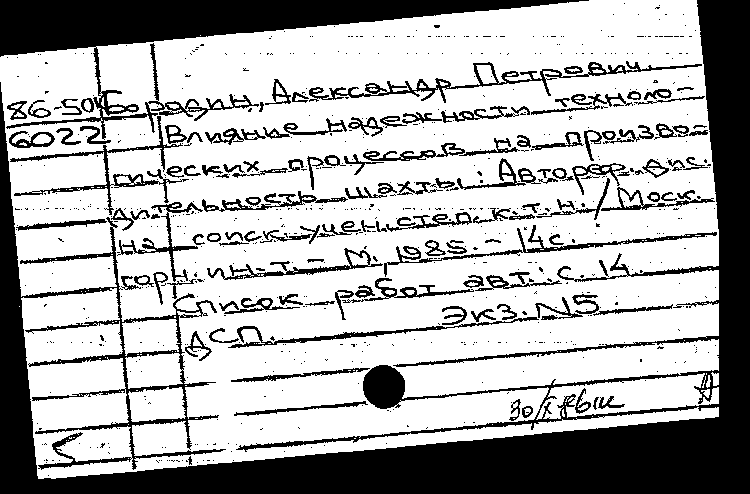 86-504 Бородин, Александр Петрович.
6022 Влияние надежности техноло-
гических процессов на произво-
дительность шахты: Автореф. дис.
на соиск. учен. степ. к.т.н. / Моск.
горн. ин-т. - М., 1985. - 14с.
Список работ авт.: с. 14.
ДСП. Экз. N5.
30/X